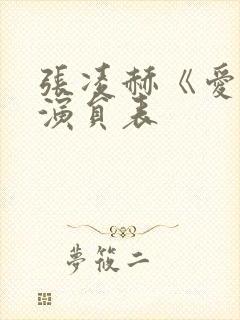 張凌赫《愛
演員表
夢筱二